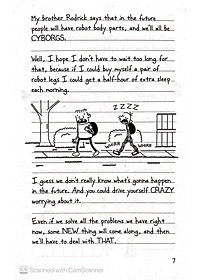 My brother Rodrick says that in the future
people will have robot body parts, and we'll all be
CYBORGS.
Well, I hope I don't have to wait too long for
that, because if I could buy myself a pair of
robot legs I could get a half-hour of extra sleep
each morning.
ZZZZ
WHIRR
WHIRR
I guess we don't really know what's gonna happen
in the future. And you could drive yourself CRAZY
worrying about it.
Even if we solve all the problems we have right
now, some NEW thing will come along, and then
we'll have to deal with THAT.
7
CS Scanned with CamScanner